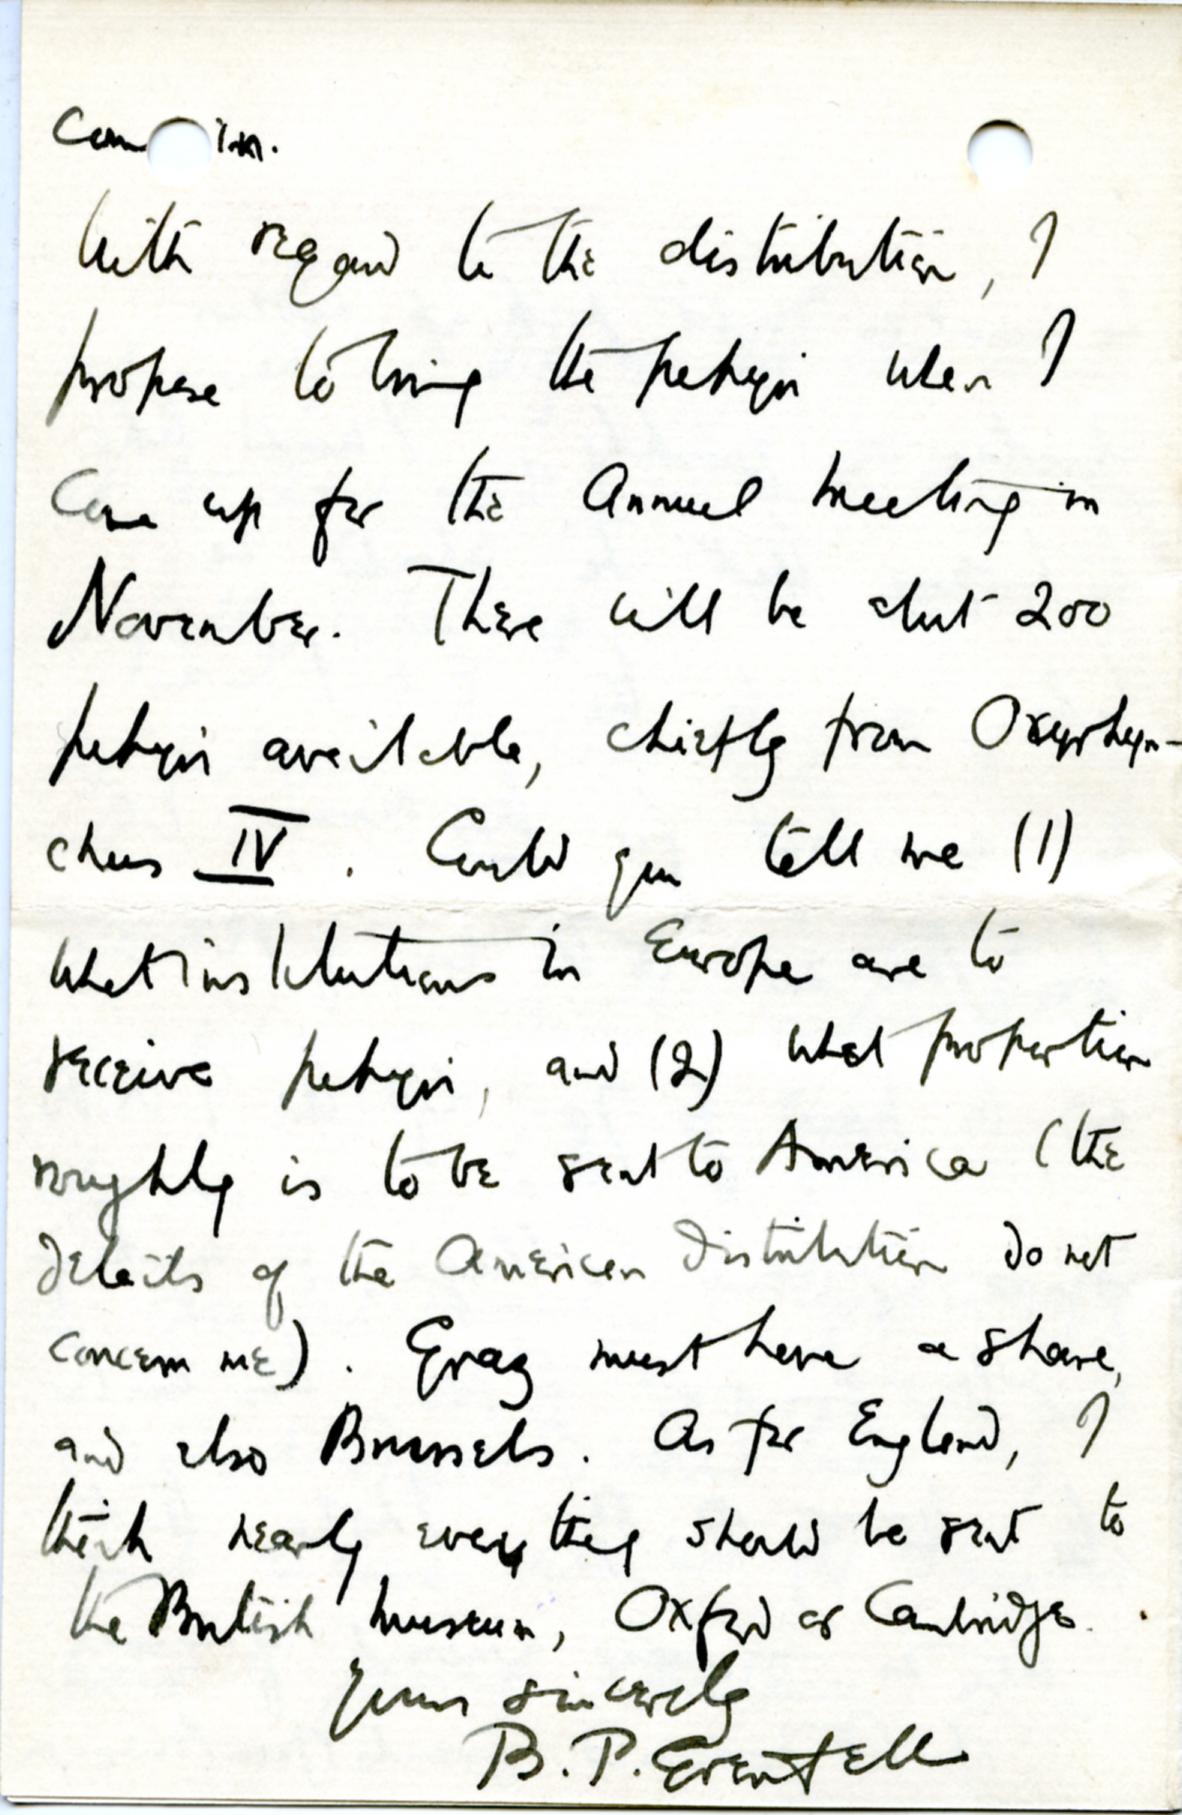 With regard to the distribution, I
propose to bring the papyri when I
come up for the Annual meeting in
November. There will be about 200
papyri available, chiefly from Oxyrhyn-
chus IV. Could you tell me (1)
what institutions in Europe are to
receive papyri, and (2) what proportion
roughly is to be sent to America (the
details of the American distribution do not
concern me). Graz must have a share,
and also Brussels. As for England, I
think nearly everything should be sent to
the British Museum, Oxford or Cambridge.
Yours sincerely
B. P. Grenfell